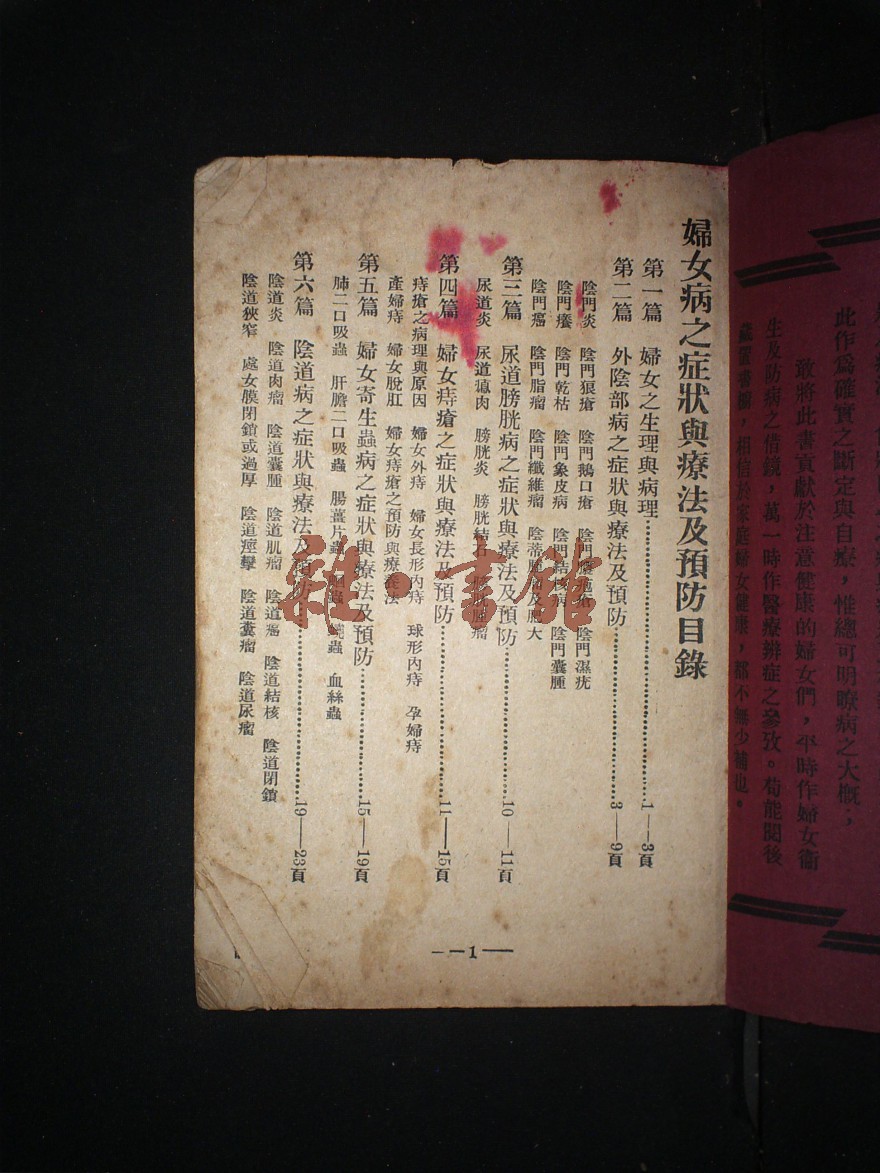 此作爲確實之斷定與自療，惟總可明瞭病之大概；
敢將此書貢獻於注意健康的婦女們，平時作婦女衞
生及防病之借鏡，萬一時作醫療辨症之參攷。苟能閱後
相信於家庭婦女健康，都不無少補也。
婦女病之症狀與療法及預防目錄
第一篇　婦女之生理與病理…………1——3頁
第二篇　外陰部病之症狀與療法及預防…………3——9頁
陰門炎　陰門狼瘡　陰門鵝口瘡　陰門　陰門濕疣
陰門癢　陰門乾枯　陰門象皮病　陰門結核病　陰門囊腫
陰門癌　陰門脂瘤　陰門纖維瘤　陰蒂肥大
第三篇　尿道膀胱病之症狀與療法及預防…………10——11頁
尿道炎　尿道瘜肉　膀胱炎　膀胱結石
第四篇　婦女痔瘡之症狀與療法及預防…………11——15頁
痔瘡之病理與原因　婦女外痔　婦女長形內痔　球形內痔　孕婦痔
產婦痔　婦女脫肛　婦女痔瘡之預防與療養法
第五篇　婦女寄生蟲病之症狀與療法及預防…………15——19頁
肺二口吸蟲　肝膽二口吸蟲　腸薑片蟲　蛔蟲　蟯蟲　血絲蟲
第六篇　陰道病之症狀與療法及預防…………19——23頁
陰道炎　陰道肉瘤　陰道囊腫　陰道肌瘤　陰道癌　陰道結核　陰道閉鎖
陰道狹窄　處女膜閉鎖或過厚　陰道痙攣　陰道囊瘤　陰道尿瘤
——1——
雜·書館